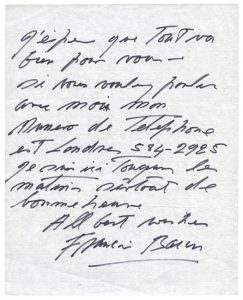 j'espère que tout va
bien pour vous –
si vous voulez parler
avec moi mon
numero de Telephone
est Londres 584-2925
je suis ici toujours les
matins surtout de
bonne heure
All best wishes
Francis Bacon